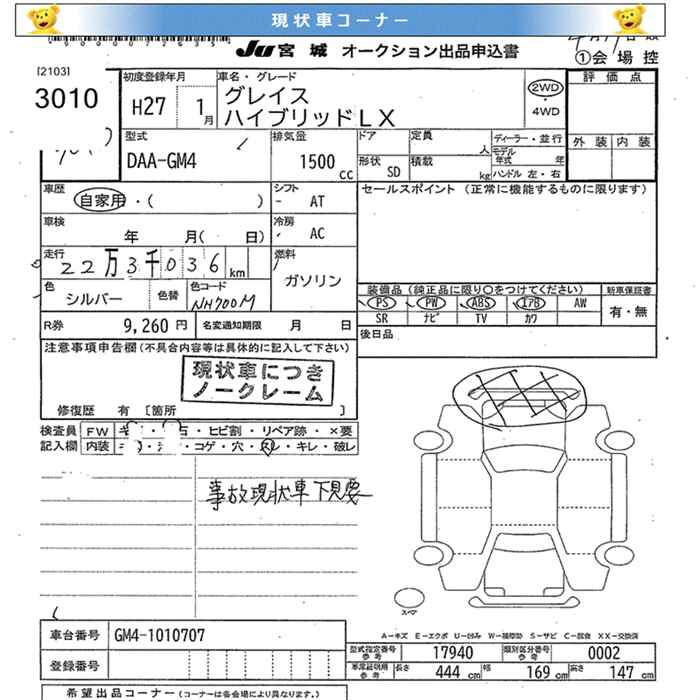 現状車コーナー
JU 宮城 オークション出品申込書
①会場控
[2103]
3010
初度登録年月
H27 1月
車名・グレード
グレイス
ハイブリッドLX
2WD
4WD
評価点
外装 内装
型式
DAA-GM4
排気量
1500 CC
ドア
定員 人
形状 SD
積載 kg
ディーラー・並行
モデル年式 年
ハンドル 左・右
車歴
自家用・( )
シフト
AT
セールスポイント (正常に機能するものに限ります)
車検
年 月( 日)
冷房
AC
走行
22万3千036km
燃料
ガソリン
色
シルバー
色替
色コード
NH700M
装備品 (純正品に限り○をつけてください)
PS PW ABS エアB AW
SR ナビ TV カワ
新車保証書
有・無
R券 9,260 円
名変通知期限 月 日
後日品
注意事項申告欄 (不具合内容等は具体的に記入して下さい)
現状車につき
ノークレーム
修復歴 有 [箇所 ]
検査員
記入欄
FW
石・ヒビ割・リペア跡・×要
内装
コゲ・穴・ヌレ・キレ・破レ
事故現状車下見要
スペア
A-キズ E-エクボ U-凹み W-補修跡 S-サビ C-腐食 XX-交換済
車台番号 GM4-1010707
登録番号
型式指定番号 参考 17940
類別区分番号 参考 0002
車庫証明用 参考
長さ 444 cm
幅 169 cm
高さ 147 cm
希望出品コーナー (コーナーは各会場により異なります。)